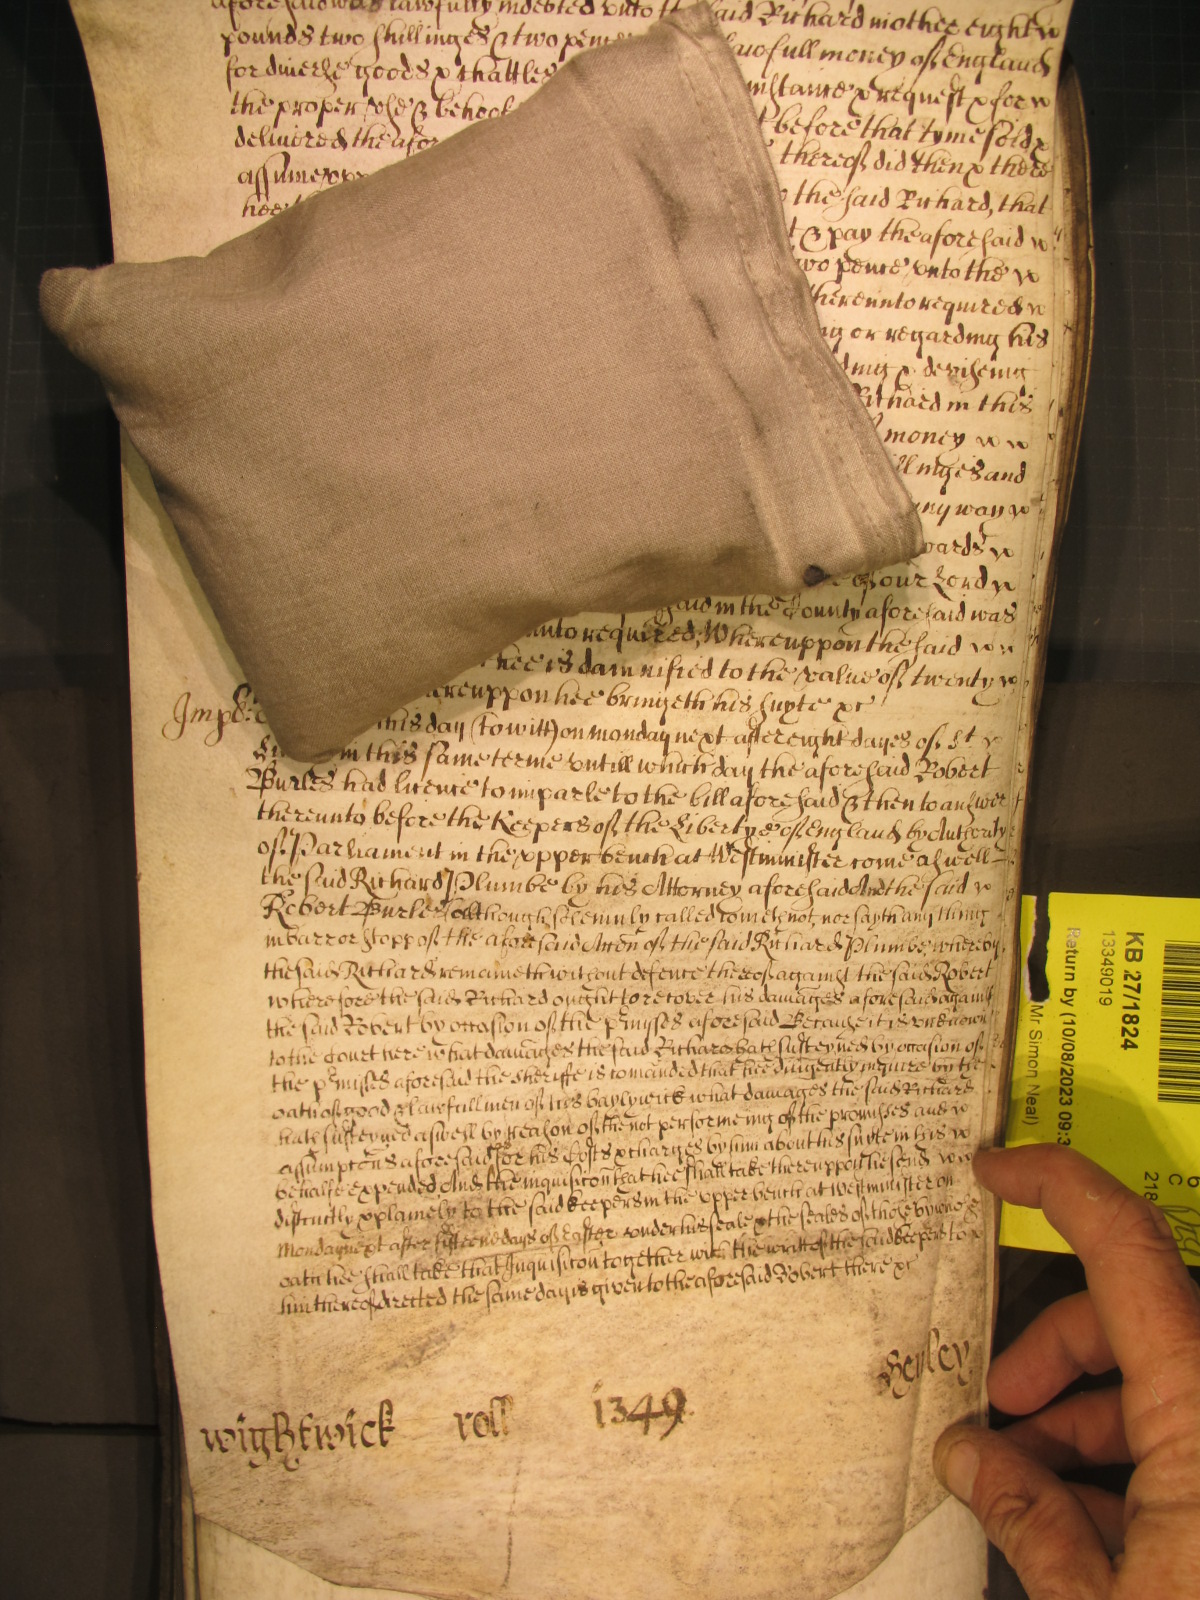 aforesaid was lawfully indebted vnto the said Richard in other eight
pounds two shillinges & two pence lawfull money of England
for diverse goods & chattles instance & request & for
the proper vse & behoof before that tyme sold &
delivered the afor thereof did then & there
assume vpp the said Richard, that
hee & pay the aforesaid
two pence vnto the
therevnto required
or regarding his
& deviseing
Richard in this
money
illinges and
any way
wards
of our Lord
said in the County aforesaid was
vnto required, Whereuppon the said
hee is damnified to the value of twenty
hereuppon hee bringeth his suyte &c
Imp
this day (to witt) on monday next after eight dayes of St
in this same terme vntill which day the aforesaid Robert
Burles had licence to imparle to the bill aforesaid & then to answer
therevnto before the Keepers of the Liberty of England by Authority
of Parliament in the vpper bench at Westminister come aswell
the said Richard Plumbe by his Attorney aforesaid And the said
Robert Burles (although solemnly called) comes not, nor sayth any thing
in barr or stopp of the aforesaid Accon of the said Richard Plumbe, whereby
the said Richard remaineth without defence thereof against the said Robert
wherefore the said Richard ought to recover his damages aforesaid against
the said Robert by occasion of the pmisses aforesaid But because it is vnknown
to the Court here what damages the said Richard hath susteyned by occasion of
the pmisses aforesaid the Sheriffe is comanded that hee diligently inquire by the
oath of good & lawfull men of his baylywick what damages the said Richard
hath susteyned aswell by reason of the not performeing of the promisses and
assumptcons aforesaid as for his Costs & charges by him about his suyte in his
behalfe expended And the inquisicon that hee shall take thereuppon hee send
distinctly & plainely to the said keepers in the vpper bench at Westminister on
Monday next after fifteene dayes of Easter vnder his seale & the seales of those by whose
oath hee shall take that Inquisicon together with the writt of the said keepers to
him thereof directed the same day is given to the aforesaid Robert there &c
Henley
wightwick roll 1349
KB 27/1824
13349019
Return by (10/08/2023 09:3
Mr Simon Neal)